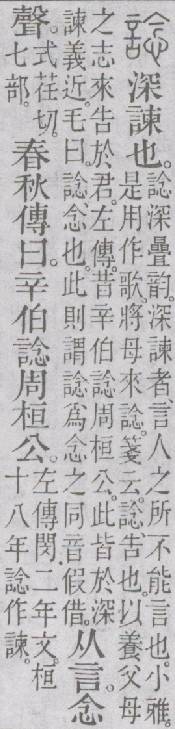 諗
深諫也。
諗深疊韵。深諫者、言人之所不能言也。小雅。
是用作歌。將母來諗。箋云。諗、告也。以養父母
之志來告於君。左傳。昔辛伯諗周桓公。此皆於深
諫義近。毛曰。諗、念也。此則謂諗為念之同音假借。
从言。念
聲。
式荏切。
七部。
春秋傳曰。辛伯諗周桓公。
左傳閔二年文。桓
十八年諗作諫。